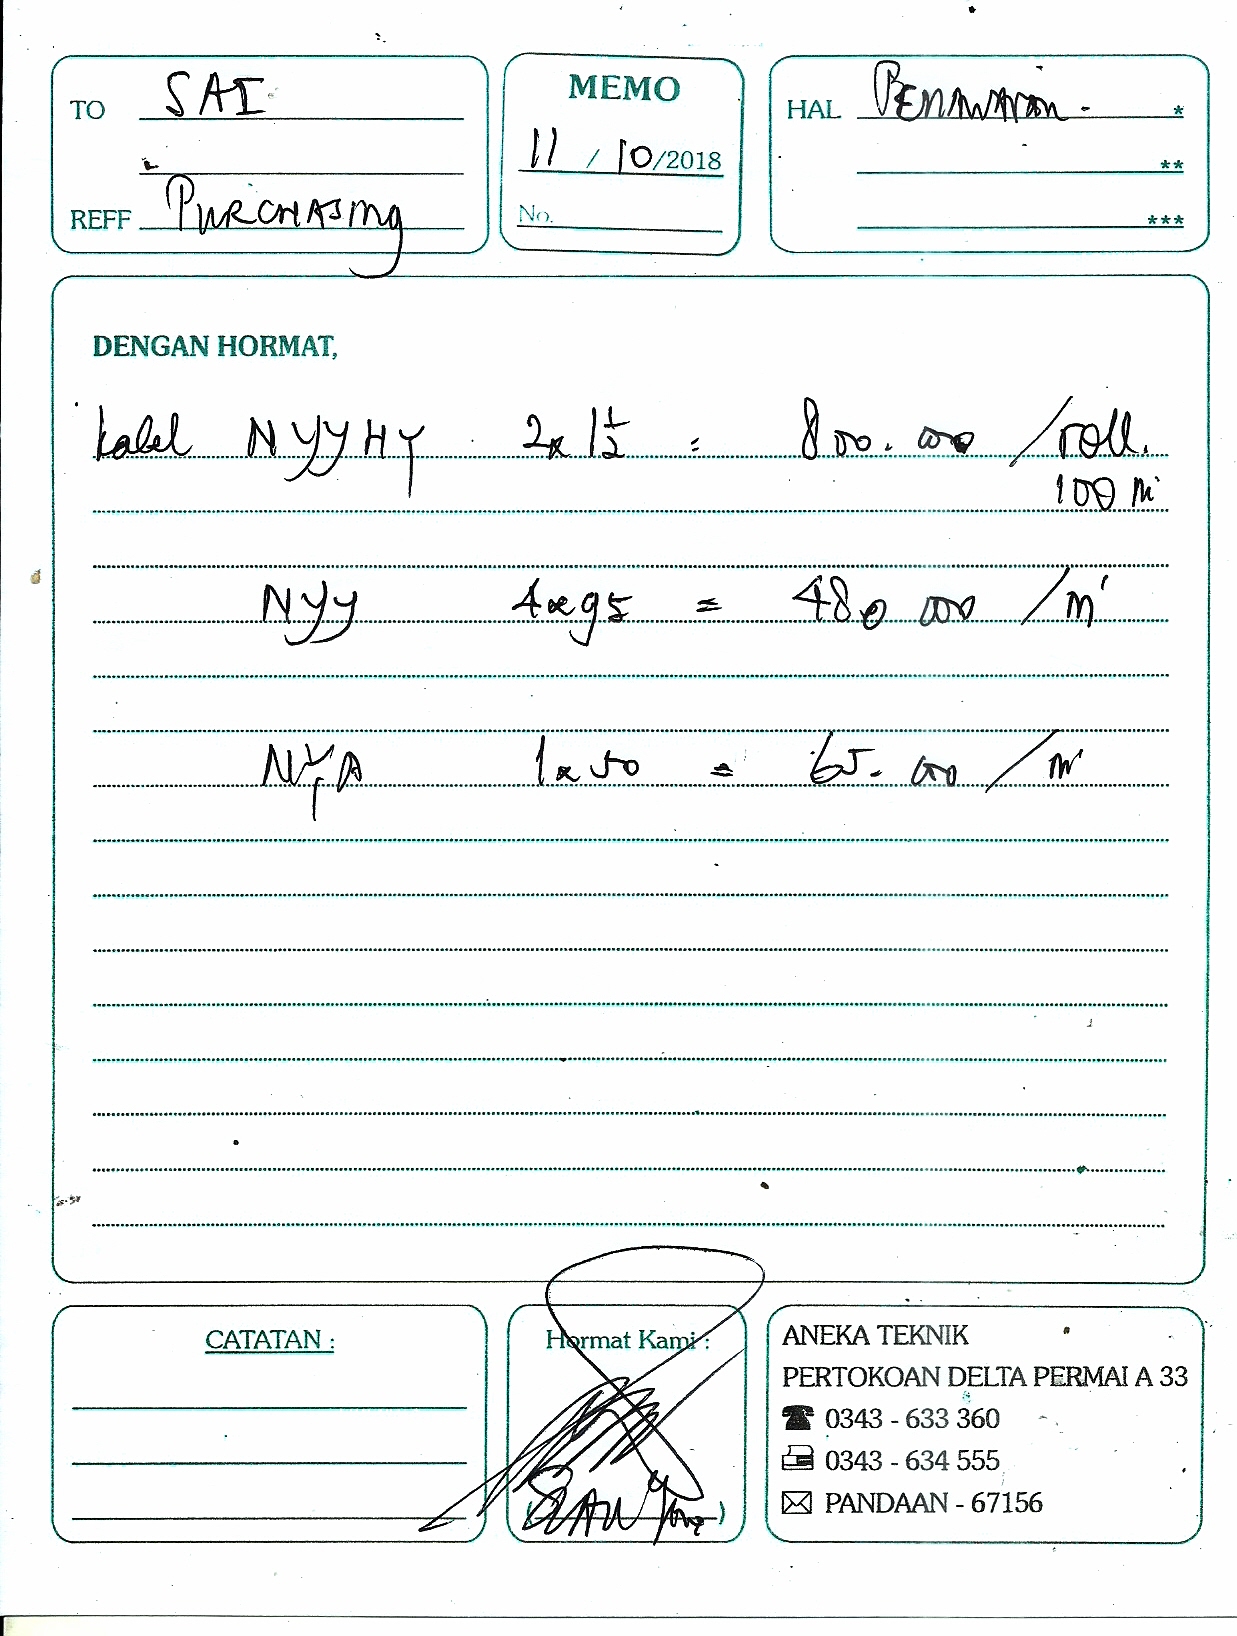 TO SAI
MEMO
HAL PENAWARAN - *
11 / 10 /2018
**
REFF PURCHASING
No.
***
DENGAN HORMAT,
kabel NYYHY 2x1½ = 800.000 /roll.
100 m'
NYY 4x95 = 480 000 /m'
NYA 1x50 = 65.000 / m'
CATATAN :
Hormat Kami :
ANEKA TEKNIK
PERTOKOAN DELTA PERMAI A 33
0343 - 633 360
0343 - 634 555
PANDAAN - 67156